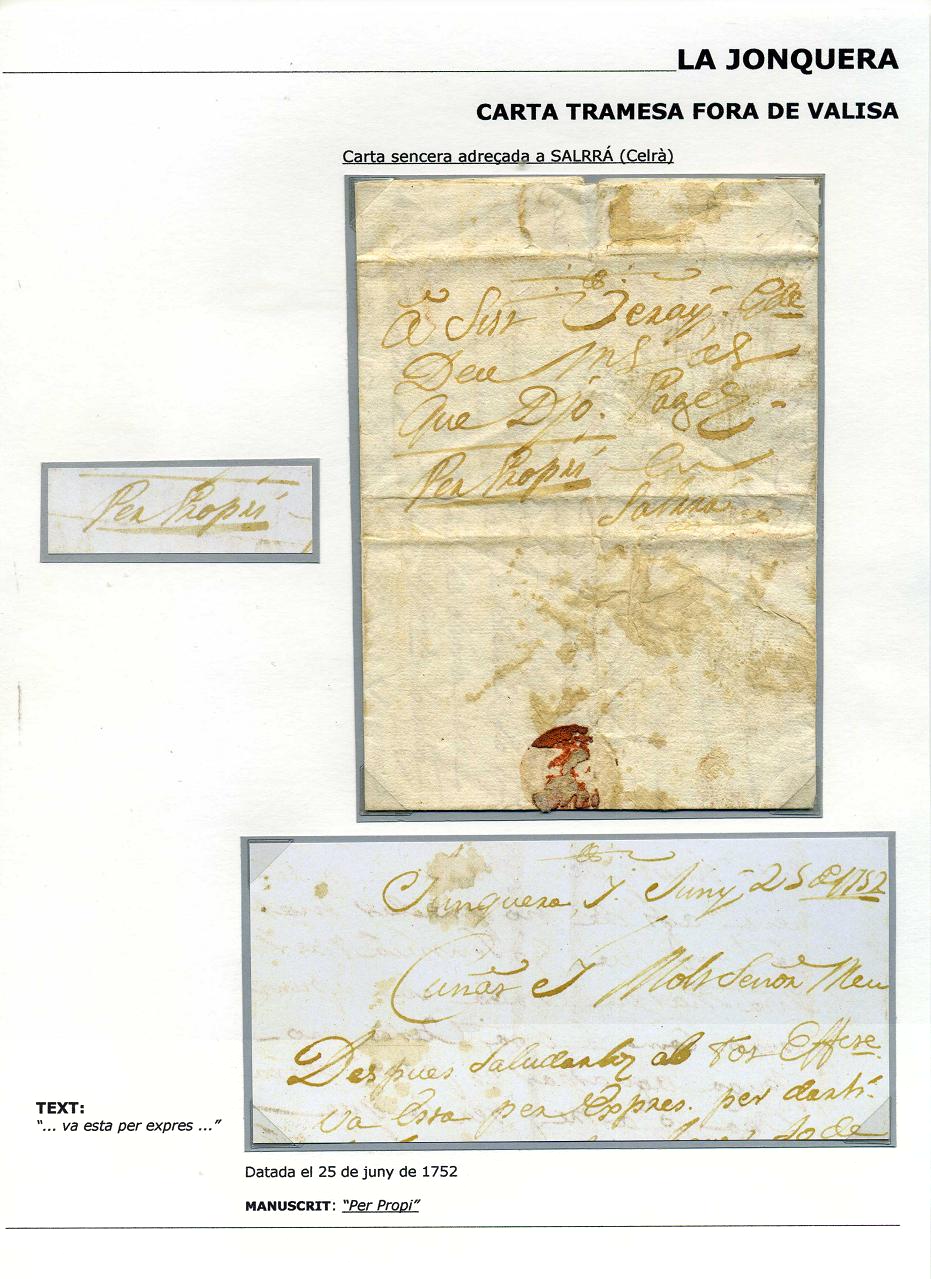 LA JONQUERA
CARTA TRAMESA FORA DE VALISA
Carta sencera adreçada a SALRRÁ (Celrà)
Deu
Que Pages
Per Propri En
Salrrá
Per Propri
Junquera Juny 25 1752
Cuñat Molt Señor Meu
Despues Saludantlos ab tot
va esta per Expres. per
TEXT:
“... va esta per expres ...”
Datada el 25 de juny de 1752
MANUSCRIT: “Per Propi”